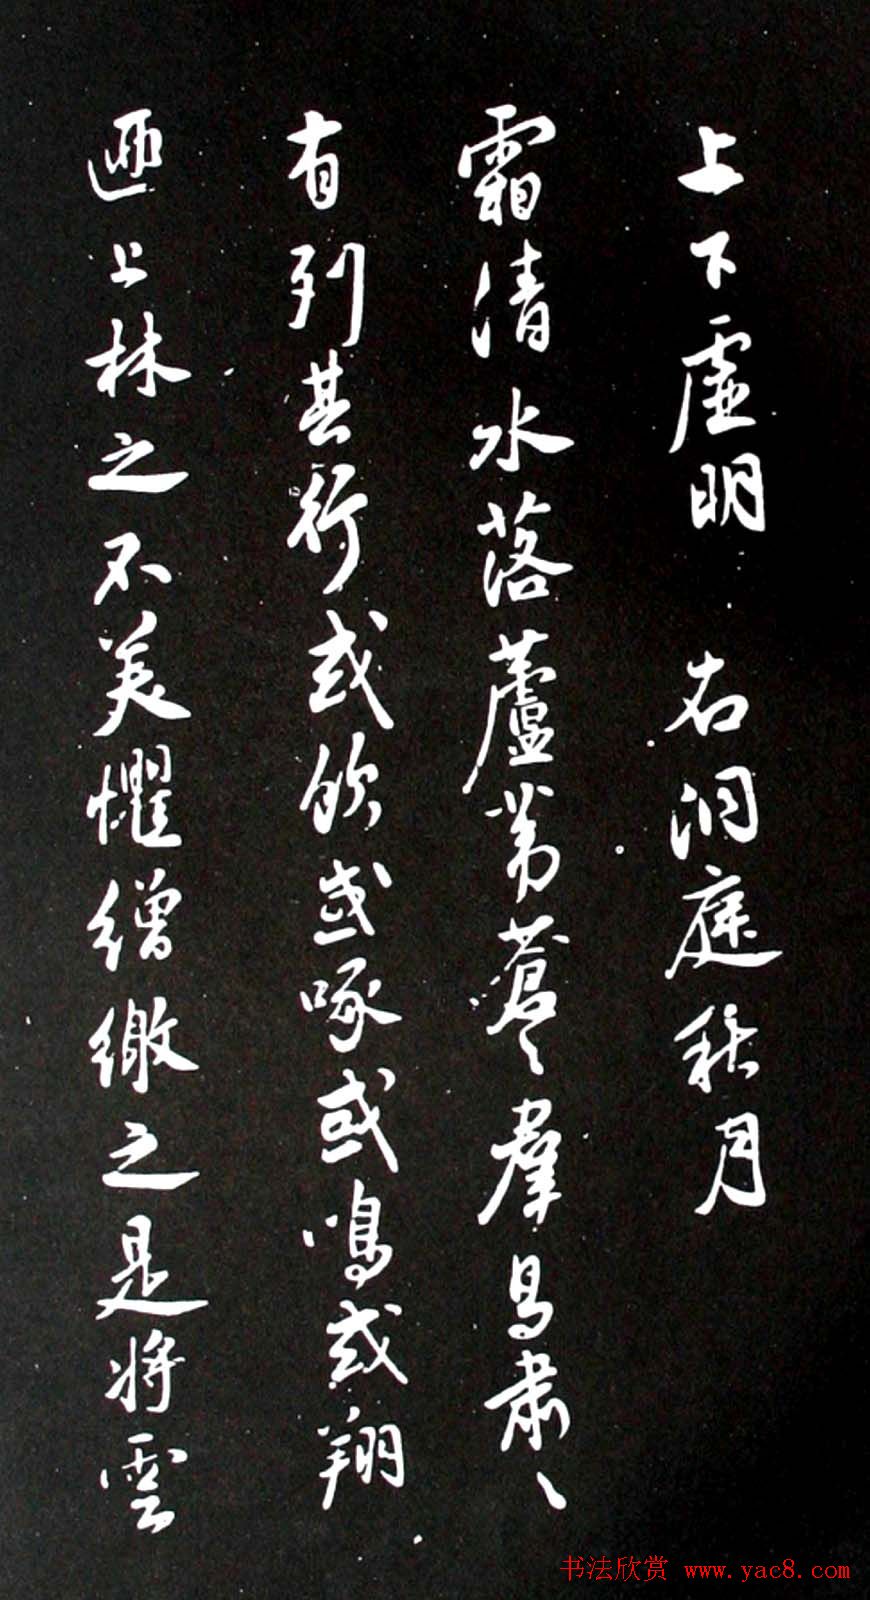 上下虛明 右洞庭秋月
霜清水落蘆葦蒼〻羣鳥肅〻
有列其行或飲或啄或鳴或翔
匪上林之不美懼繒繳之是將雲
书法欣赏 www.yac8.com